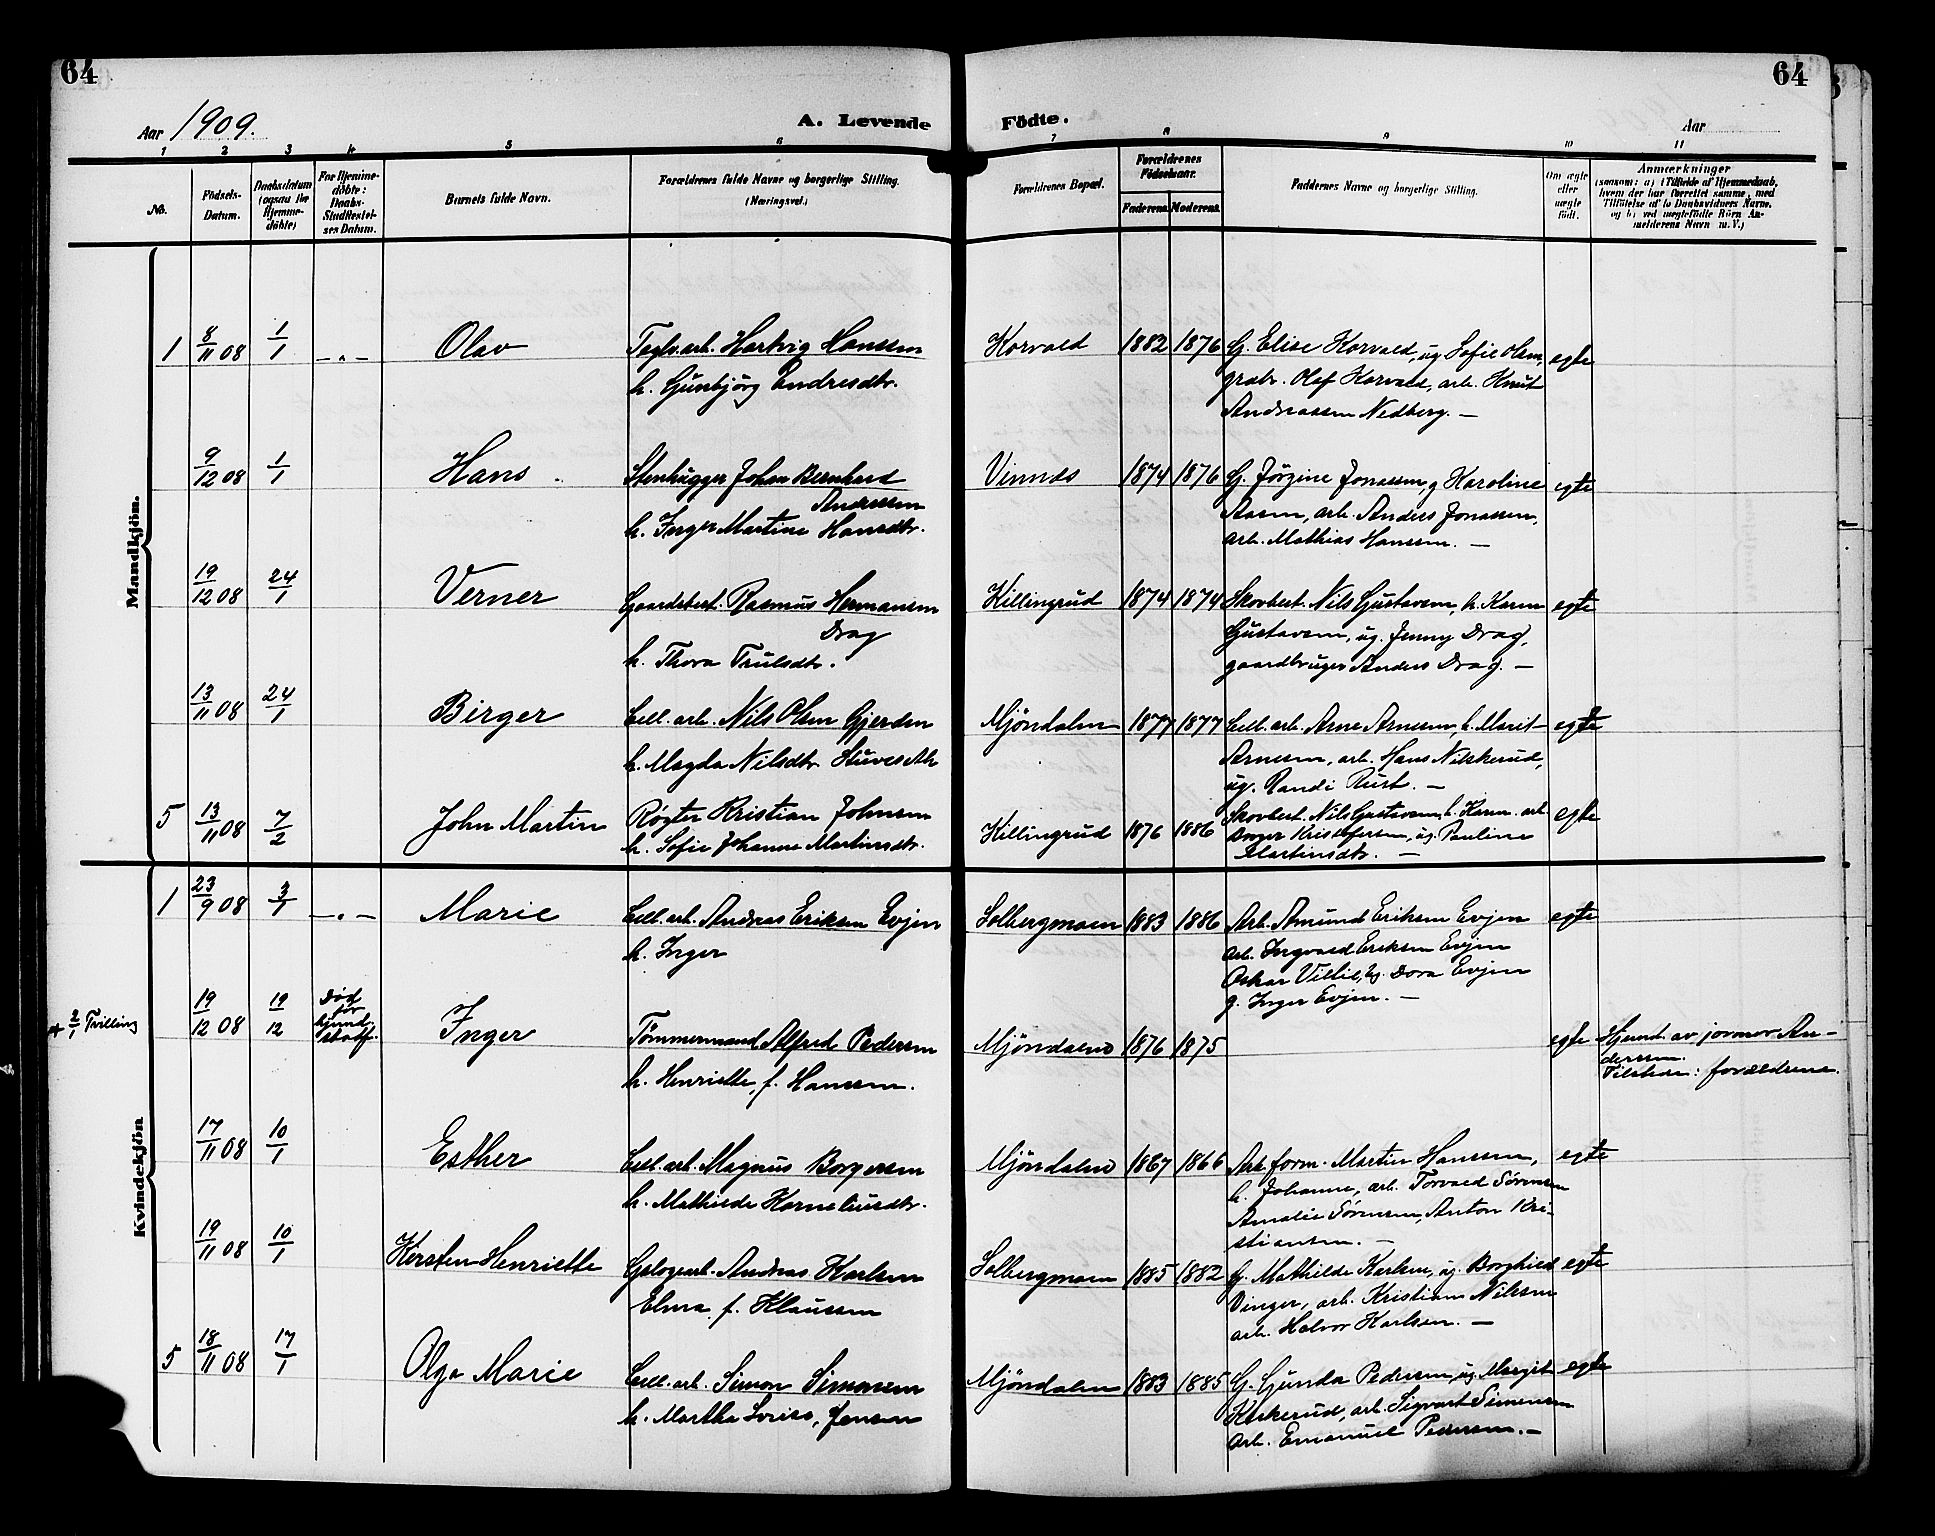 64
64
Aar 1909.
A. Levende
Fødte.
Aar
1 2 3 4 5 6 7 8 9 10 11
No.
Fødsels-
Datum.
Daabsdatum
(ogsaa for
Hjemme-
døbte)
For Hjemme-
døbte:
Daabs-
Stadfæstel-
ses Datum.
Barnets fulde Navn.
Forældrenes fulde Navne og borgerlige Stilling.
(Næringsvei.)
Forældrenes Bopæl.
Forældrenes
Fødselsaar.
Faderens. Moderens.
Faddernes Navne og borgerlige Stilling.
Om ægte
eller
uægte
født.
Anmærkninger
(saasom: a) i Tilfælde af Hjemmedaab,
hvem der har forrettet samme, med
Tilføielse af to Daabsvidners Navne,
og b) ved uægtefødte Børn An-
melderens Navn m. V.)
Mandkjön.
1 8/11 08 1/1 — " — Olav
Hartvig Hanssen
h. Gunbjörg Endresdtr.
Korvald 1882 1876
G. Elise Korvald, ug Sofie Olsen,
Olaf Korvald, arb. Knut
Andreassen Nedberg. —
egte
9/12 08 1/1 Hans
Stenhugger Johan Bernhard
Andressen
h. Inger Martine Hansdtr.
1874 1876
G. Jörgine Jonassen, g Karoline
arb. Anders Jonassen,
arb. Mathias Hanssen. —
egte
19/12 08 24/1 Verner
Gaardbest. Rasmus Hermansen
Drag
h. Thora Trulsdtr.
Killingrud 1874 1874
Skovbest. Nils Gustavsen, h. Karen
Gustavsen, ug. Jenny Drag,
gaardbruger Anders Drag. —
egte
13/11 08 24/1 Birger
Cell. arb. Nils Olsen Gjerden
h. Magda Nilsdtr.
Mjöndalen 1877 1877
Cell. arb. Arne Arnesen, h. Marit
Arnesen, arb. Hans Nilskerud,
ug. Randi Rust. —
egte
5 13/11 08 7/2 John Martin
Røgter Kristian Johnsen
h. Sofie Johanne Martinsdtr.
Killingrud 1876 1886
Skovbest. Nils Gustavsen, h. Karen. arb.
Kristofersen, ug. Pauline
Martinsdtr. —
egte
Kvindekjön
1 23/9 08 3/1 — " — Marie
Cell. arb. Andreas Eriksen Evjen
h. Inger
Solbergmoen 1883 1886
Arb. Amund Eriksen Evjen
arb. Ingvald Eriksen Evjen
Oskar ug. Dora Evjen
g. Inger Evjen. —
egte
+ 2/1 Tvilling
19/12 08 19/12 Død
før
stadf. Inger
Tömmermand Alfred Pedersen
h. Henriette, f. Hanssen.
Mjöndalen 1876 1875
egte
Hjemd. av jormor An-
derssen.
Tilstede: forældrene.
17/11 08 10/1 Esther
Cell. arb. Magnus Borgersen
h. Mathilde Korneliusdtr.
Mjöndalen 1867 1866
Arb. form. Martin Hanssen,
h. Johanne, arb. Torvald Sörensen
Amalie Sörensen, Anton Kri-
stiansen. —
egte
19/11 08 10/1 Kirsten Henriette
Andreas Karlsen
Elma, f. Klaussen
Solbergmoen 1885 1882
G. Mathilde Karlsen, ug. Borghild
Vinger, arb. Kristian Nilssen
arb. Halvor Karlsen. —
egte
5 18/11 08 17/1 Olga Marie
Cell. arb. Simon Simonsen
h. Martha Lovise, Jensen
Mjöndalen 1883 1885
G. Gunda Pedersen, ug Margit
Kirkerud, arb. Sigvart Simensen
arb. Emanuel Pedersen. —
egte